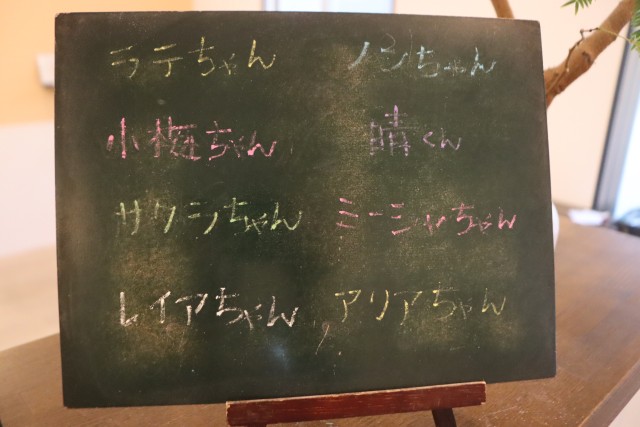 ラテちゃん
ノンちゃん
小梅ちゃん
晴くん
サクラちゃん
ミーシャちゃん
レイアちゃん
アリアちゃん